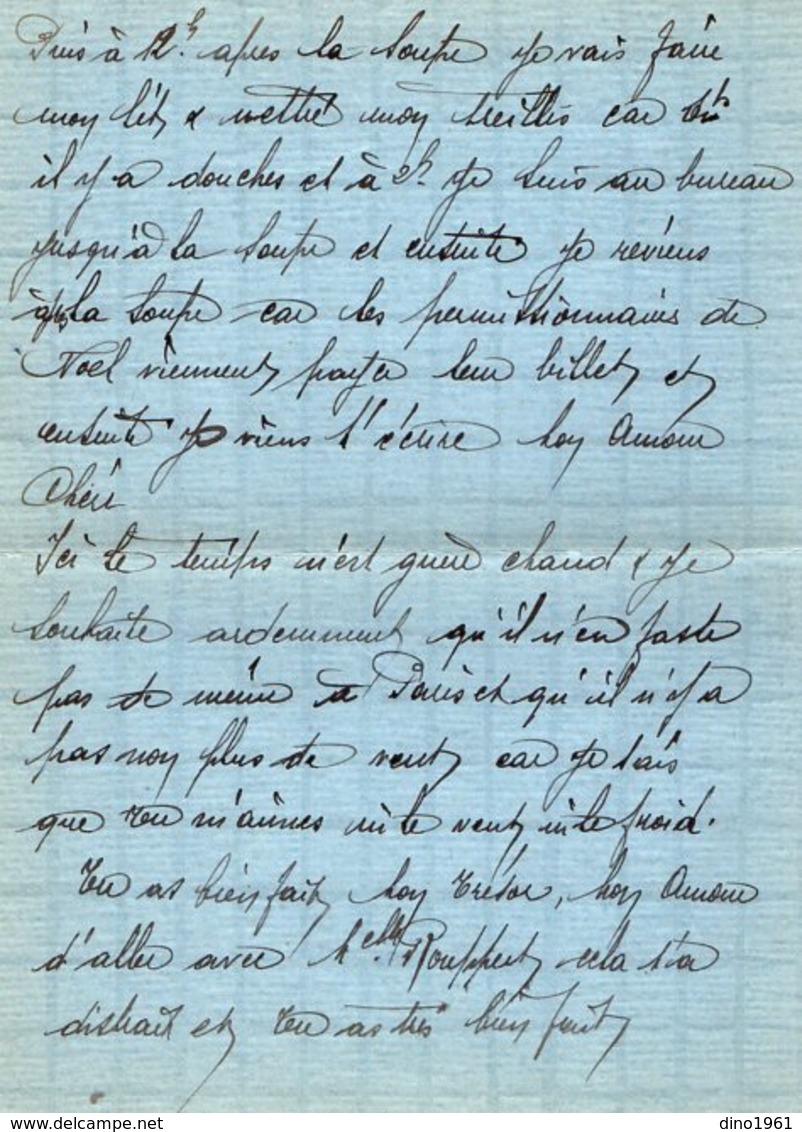 Puis à 12h après la soupe je vais faire
mon lit & mettre mon treillis car
il y a douches et à 2h je suis au bureau
jusqu'à la soupe et ensuite je reviens
après la soupe car les permissionnaires de
Noel viennent payer leur billet et
ensuite je viens t'écrire mon Amour
Chéri
Ici le temps n'est guère chaud & je
souhaite ardemment qu'il n'en fasse
pas de même à Paris et qu'il n'y a
pas non plus de vent car je sais
que tu n'aimes ni le vent ni le froid.
Tu as bien fait mon trésor, mon Amour
d'aller avec Melle Rouppert cela t'a
distrait et tu as très bien fait
delcampe.net
dino1961